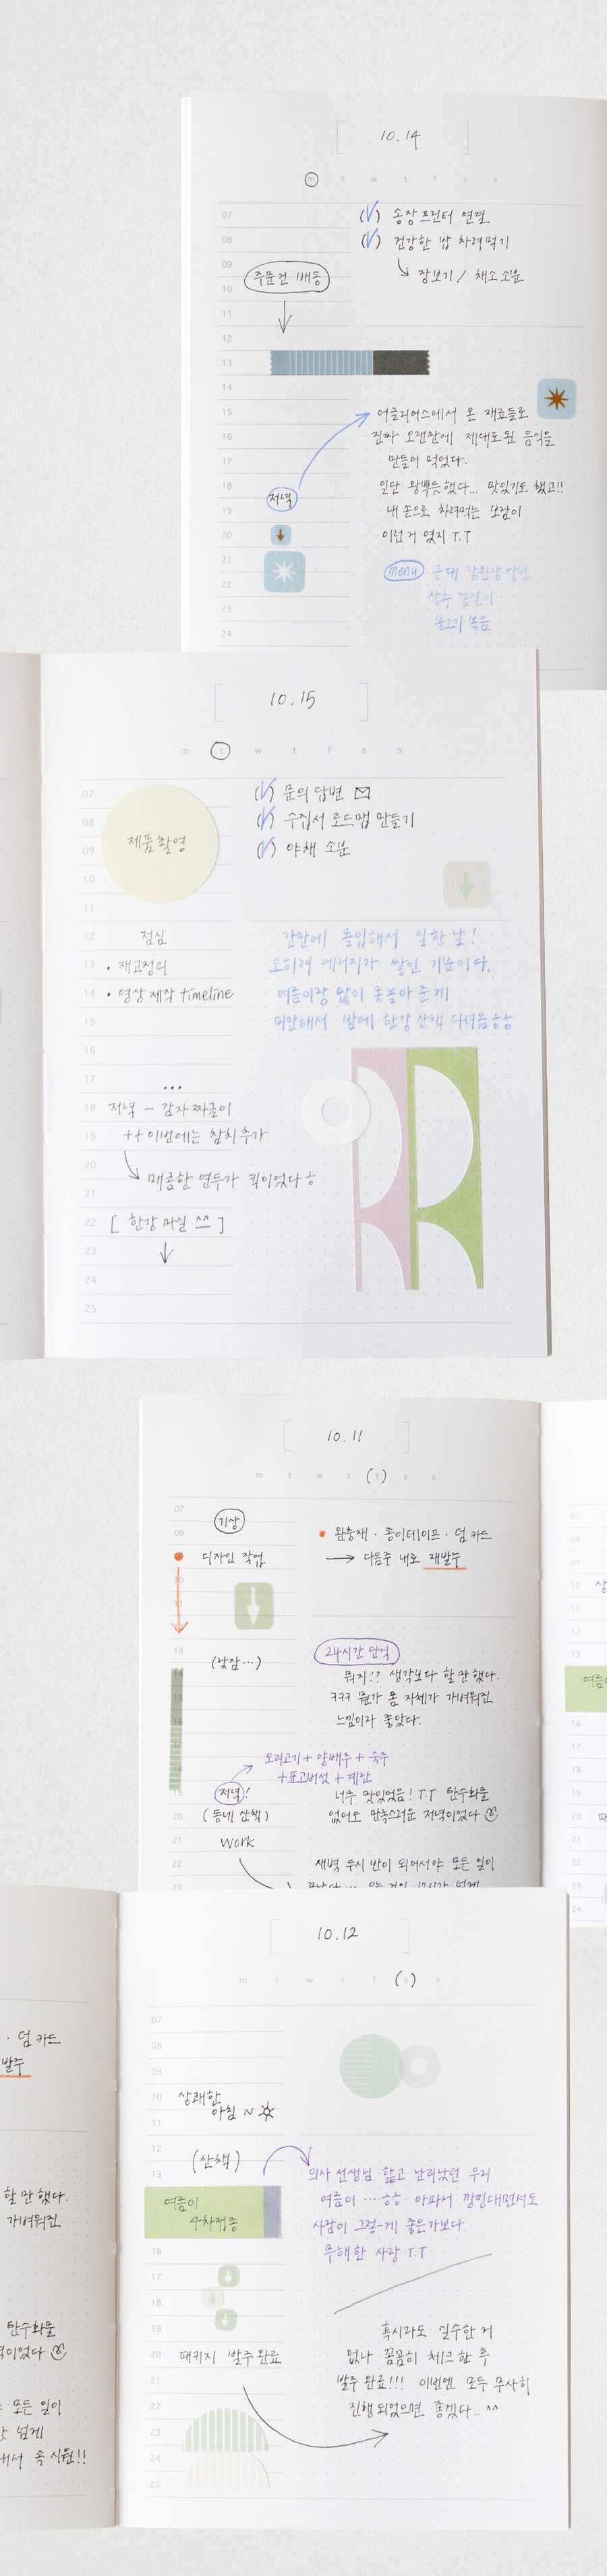 10.14
m t w t f s s
07
08
09
10
11
12
13
14
15
16
17
18
19
20
21
22
23
24
(V) 송장 프린터 연결
(V) 건강한 밥 차려먹기
장보기 / 채소 소분
주문건 배송
저녁
어글리어스에서 온 재료들로
진짜 오랜만에 제대로 된 음식을
만들어 먹었다.
일단 왕뿌듯했다... 맛있기도 했고!!
내 손으로 차려먹는 보람이
이런거 였지 T.T
menu 근대 강된장 쌈밥
상추 겉절이
불고기 볶음
10.15
m t w t f s s
07
08
09
10
11
12
13
14
15
16
17
18
19
20
21
22
23
24
25
(V) 문의 답변
(V) 수집서 로드맵 만들기
(V) 야채 소분
제품촬영
점심
• 재고정리
• 영상 제작 timeline
...
저녁 - 감자 짜글이
++ 이번에는 참치추가
매콤한 연두가 킥이었다ㅎ
[ 한강 마실 ^^ ]
간만에 몰입해서 일한 날!
도히려 에너지가 쌓인 기분이다.
여름이랑 많이 못놀아 준게
미안해서 밤에 한강 산책 다녀옴ㅎㅎ
10.11
m t w t (f) s s
07
08
10
11
13
14
15
16
19
20
21
22
23
기상
디자인 작업
(낮잠...)
저녁!
(동네 산책)
work
• 완충재 · 종이테이프 · 덤 카드
→ 다음주 내로 재발주
24시간 단식
뭐지!? 생각보다 할만했다.
ㅋㅋㅋ 뭔가 몸 자체가 가벼워진
느낌이라 좋았다.
오리고기 + 양배추 + 숙주
+ 표고버섯 + 계란
너무 맛있었음! T.T 탄수화물
없어도 만족스러운 저녁이었다
새벽 두시 반이 되어서야 모든 일이
07
08
09
10
11
12
13
16
18
19
20
21
22
23
24
여름이
· 덤 카드
발주
할만했다.
가벼워진
탄수화물
이었다
모든 일이
넘게
해서 속 시원!!
10.12
m t w t f (s) s
07
08
09
10
11
12
13
16
17
18
19
20
21
22
23
24
25
상쾌한
아침 ~
(산책)
여름이
4차접종
패키지 발주 완료
의사 선생님 핥고 난리났던 우리
여름이 ... ㅎㅎ 아파서 낑낑대면서도
사람이 그렇-게 좋은가보다.
무해한 사랑 T.T
혹시라도 실수한 거
없나 꼼꼼히 체크한 후
발주 완료!!! 이번엔 모두 무사히
진행되었으면 좋겠다.. ^^